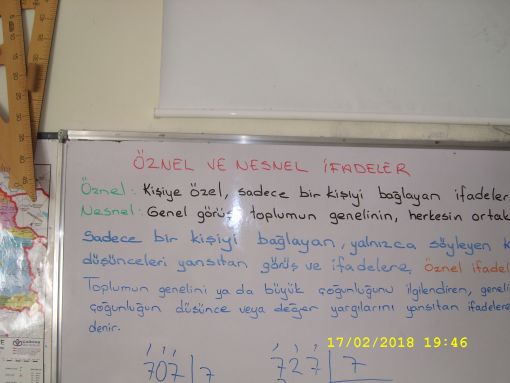 ÖZNEL VE NESNEL İFADELER
Öznel: Kişiye özel, sadece bir kişiyi bağlayan ifadeler
Nesnel: Genel görüş, toplumun genelinin, herkesin ortak
Sadece bir kişiyi bağlayan, yalnızca söyleyen
düşünceleri yansıtan görüş ve ifadelere, öznel ifadel
Toplumun genelini ya da büyük çoğunluğunu ilgilendiren, geneli
çoğunluğun düşünce veya değer yargılarını yansıtan ifadelere
denir.
17/02/2018 19:46
707 7 727 7